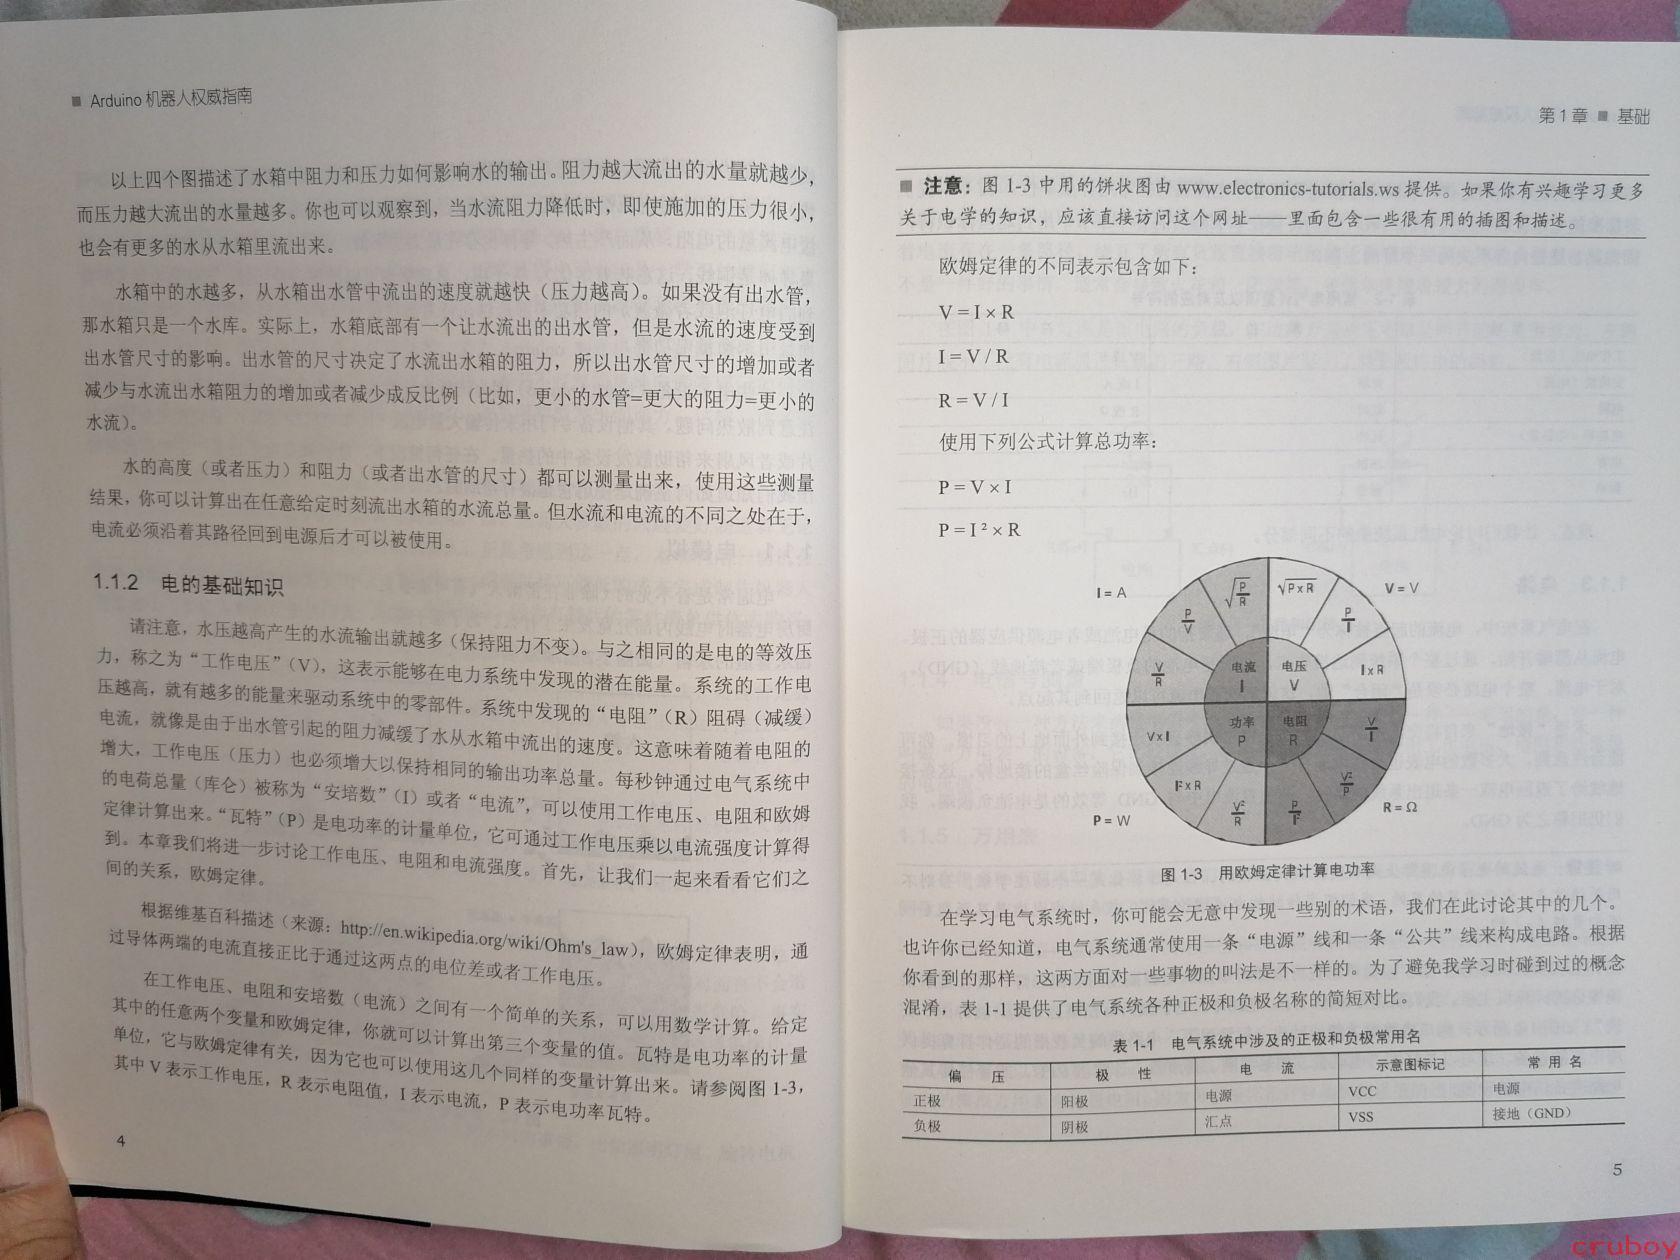 ■ Arduino 机器人权威指南
以上四个图描述了水箱中阻力和压力如何影响水的输出。阻力越大流出的水量就越少，
而压力越大流出的水量越多。你也可以观察到，当水流阻力降低时，即使施加的压力很小，
也会有更多的水从水箱里流出来。
水箱中的水越多，从水箱出水管中流出的速度就越快（压力越高）。如果没有出水管，
那水箱只是一个水库。实际上，水箱底部有一个让水流出的出水管，但是水流的速度受到
出水管尺寸的影响。出水管的尺寸决定了水流出水箱的阻力，所以出水管尺寸的增加或者
减少与水流出水箱阻力的增加或者减少成反比例（比如，更小的水管=更大的阻力=更小的
水流）。
水的高度（或者压力）和阻力（或者出水管的尺寸）都可以测量出来，使用这些测量
结果，你可以计算出在任意给定时刻流出水箱的水流总量。但水流和电流的不同之处在于，
电流必须沿着其路径回到电源后才可以被使用。
1.1.2 电的基础知识
请注意，水压越高产生的水流输出就越多（保持阻力不变）。与之相同的是电的等效压
力，称之为“工作电压”（V），这表示能够在电力系统中发现的潜在能量。系统的工作电
压越高，就有越多的能量来驱动系统中的零部件。系统中发现的“电阻”（R）阻碍（减缓）
电流，就像是由于出水管引起的阻力减缓了水从水箱中流出的速度。这意味着随着电阻的
增大，工作电压（压力）也必须增大以保持相同的输出功率总量。每秒钟通过电气系统中
的电荷总量（库仑）被称为“安培数”（I）或者“电流”，可以使用工作电压、电阻和欧姆
定律计算出来。“瓦特”（P）是电功率的计量单位，它可通过工作电压乘以电流强度计算得
到。本章我们将进一步讨论工作电压、电阻和电流强度。首先，让我们一起来看看它们之
间的关系，欧姆定律。
根据维基百科描述（来源：http://en.wikipedia.org/wiki/Ohm's_law），欧姆定律表明，通
过导体两端的电流直接正比于通过这两点的电位差或者工作电压。
在工作电压、电阻和安培数（电流）之间有一个简单的关系，可以用数学计算。给定
其中的任意两个变量和欧姆定律，你就可以计算出第三个变量的值。瓦特是电功率的计量
单位，它与欧姆定律有关，因为它也可以使用这几个同样的变量计算出来。请参阅图 1-3，
其中 V 表示工作电压，R 表示电阻值，I 表示电流，P 表示电功率瓦特。
4
第 1 章 ■ 基础
■ 注意：图 1-3 中用的饼状图由 www.electronics-tutorials.ws 提供。如果你有兴趣学习更多
关于电学的知识，应该直接访问这个网址——里面包含一些很有用的插图和描述。
欧姆定律的不同表示包含如下：
V = I × R
I = V / R
R = V / I
使用下列公式计算总功率：
P = V × I
P = I ² × R
I = A
V = V
√P/R
√PxR
P/V
P/I
V/R
IxR
电流 I
电压 V
功率 P
电阻 R
VxI
V/I
I²xR
V²/P
V²/R
P/I²
P = W
R = Ω
图 1-3 用欧姆定律计算电功率
在学习电气系统时，你可能会无意中发现一些别的术语，我们在此讨论其中的几个。
也许你已经知道，电气系统通常使用一条“电源”线和一条“公共”线来构成电路。根据
你看到的那样，这两方面对一些事物的叫法是不一样的。为了避免我学习时碰到过的概念
混淆，表 1-1 提供了电气系统各种正极和负极名称的简短对比。
表 1-1 电气系统中涉及的正极和负极常用名
偏 压 极 性 电 流 示意图标记 常 用 名
正极 阳极 电源 VCC 电源
负极 阴极 汇点 VSS 接地（GND）
5
cruboy